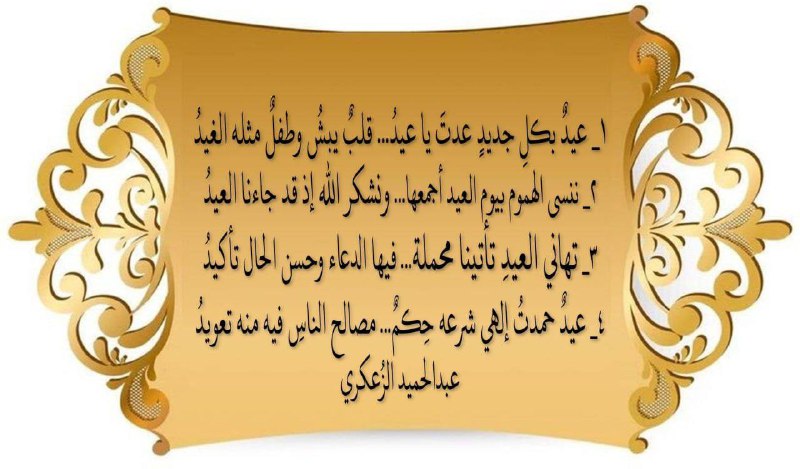 ١ـ عيدٌ بكلِ جديدٍ عدتَ يا عيدُ... قلبٌ يبشُ وطفلٌ مثله الغيدُ
٢ـ ننسى الهموم بيوم العيد أجمعها... ونشكر الله إذ قد جاءنا العيدُ
٣ـ تهاني العيدِ تأتينا محملة... فيها الدعاء وحسن الحال تأكيدُ
٤ـ عيدٌ حمدتُ إلهي شرعه حِكمٌ... مصالح الناسِ فيه منه تعويدُ
عبدالحميد الزُعكري